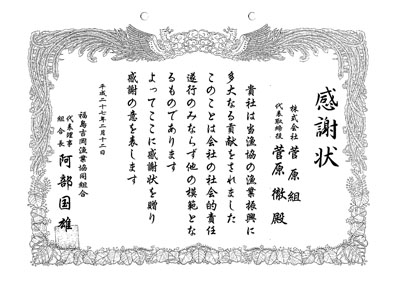 感謝状
株式会社 菅原組
代表取締役 菅原 徹 殿
貴社は当漁協の漁業振興に
多大なる貢献をされました
このことは会社の社会的責任
遂行のみならず他の模範とな
るものであります
よってここに感謝状を贈り
感謝の意を表します
平成二十七年二月十二日
福島吉岡漁業協同組合
代表理事
組合長 阿部国雄